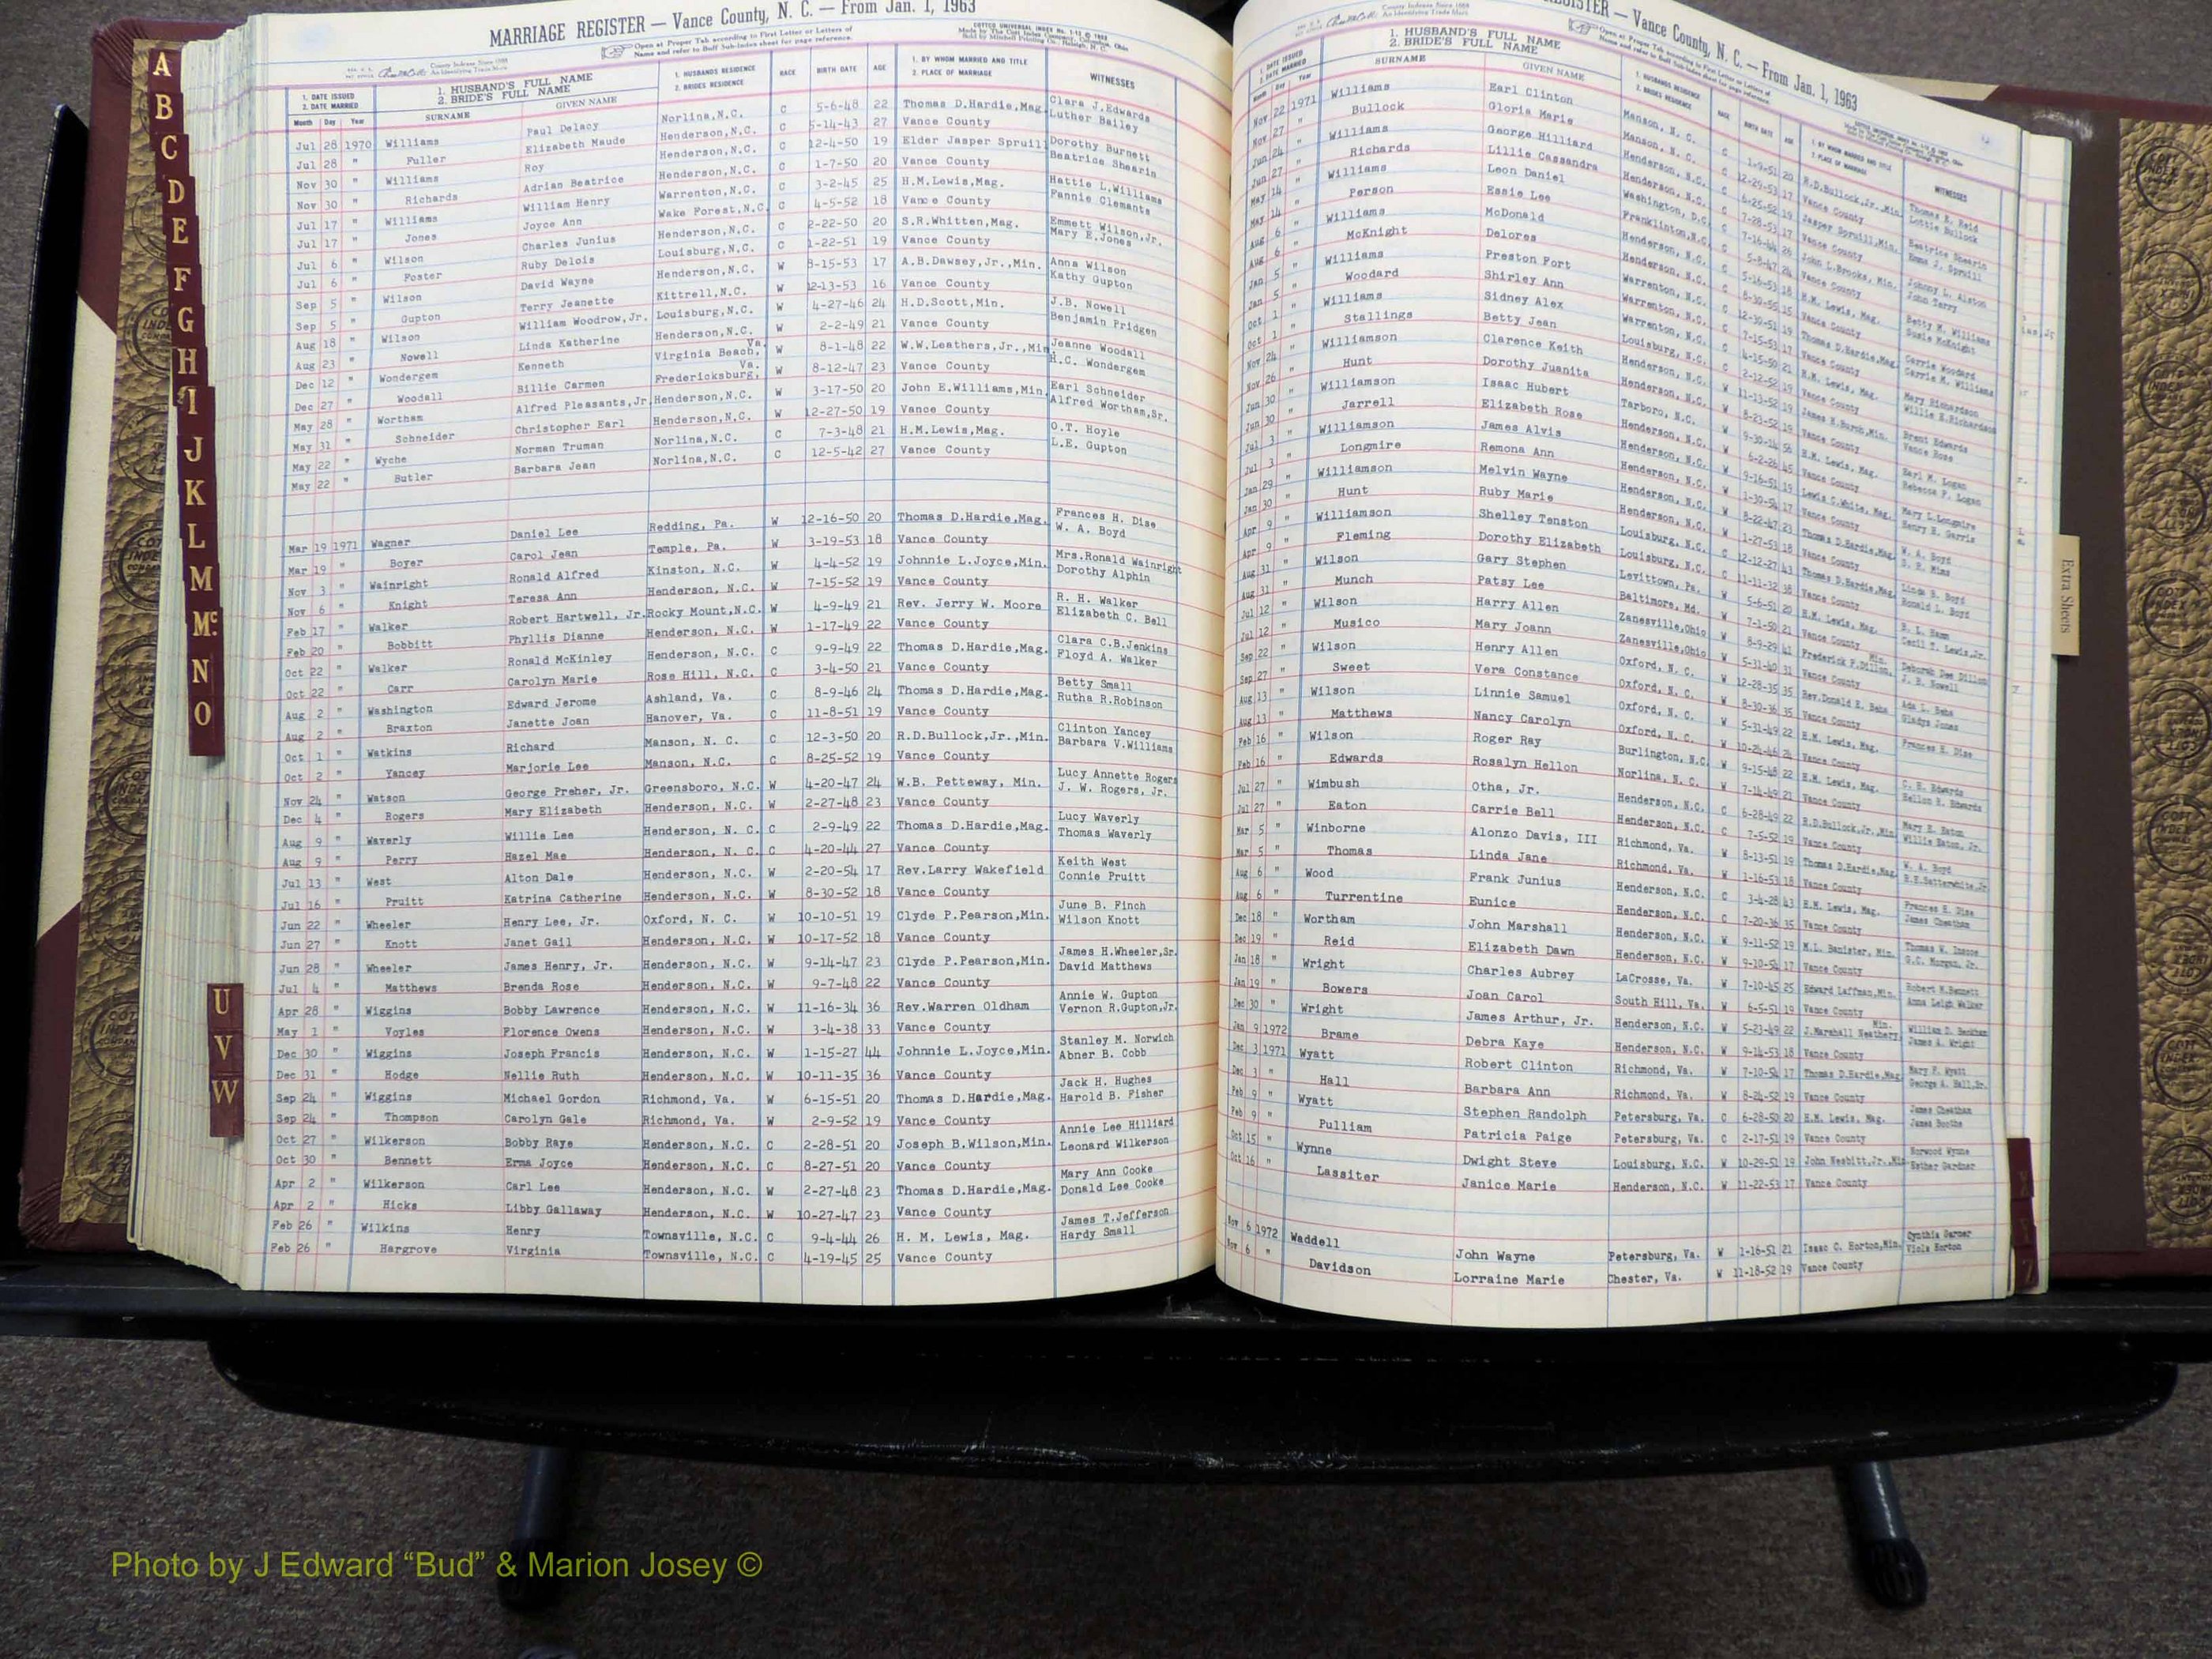 MARRIAGE REGISTER — Vance County, N. C. — From Jan. 1, 1963
Open at Proper Tab according to First Letter or Letters of
Name and refer to Buff Sub-Index sheet for page reference.
1. DATE ISSUED 2. DATE MARRIED 1. HUSBAND'S FULL NAME 2. BRIDE'S FULL NAME 1. HUSBANDS RESIDENCE 2. BRIDES RESIDENCE RACE BIRTH DATE AGE 1. BY WHOM MARRIED AND TITLE 2. PLACE OF MARRIAGE WITNESSES
Month Day Year SURNAME GIVEN NAME
Jul 28 1970 Williams Paul Delacy Norlina,N.C. C 5-6-48 22 Thomas D.Hardie,Mag. Clara J.Edwards
Jul 28 " Fuller Elizabeth Maude Henderson,N.C. C 5-14-43 27 Vance County Luther Bailey
Nov 30 " Williams Roy Henderson,N.C. C 12-4-50 19 Elder Jasper Spruill Dorothy Burnett
Nov 30 " Richards Adrian Beatrice Henderson,N.C. C 1-7-50 20 Vance County Beatrice Shearin
Jul 17 " Williams William Henry Warrenton,N.C. C 3-2-45 25 H.M.Lewis,Mag. Hattie L.Williams
Jul 17 " Jones Joyce Ann Wake Forest,N.C. C 4-5-52 18 Vance County Fannie Clements
Jul 6 " Wilson Charles Junius Henderson,N.C. C 2-22-50 20 S.R.Whitten,Mag. Emmett Wilson,Jr.
Jul 6 " Foster Ruby Delois Louisburg,N.C. C 1-22-51 19 Vance County Mary E.Jones
Sep 5 " Wilson David Wayne Henderson,N.C. W 8-15-53 17 A.B.Dawsey,Jr.,Min. Anna Wilson
Sep 5 " Gupton Terry Jeanette Kittrell,N.C. W 12-13-53 16 Vance County Kathy Gupton
Aug 18 " Wilson William Woodrow,Jr. Louisburg,N.C. W 4-27-46 24 H.D.Scott,Min. J.B. Nowell
Aug 23 " Nowell Linda Katherine Henderson,N.C. W 2-2-49 21 Vance County Benjamin Pridgen
Dec 12 " Wondergem Kenneth Virginia Beach, Va. W 8-1-48 22 W.W.Leathers,Jr.,Min Jeanne Woodall
Dec 27 " Woodall Billie Carmen Fredericksburg, Va. W 8-12-47 23 Vance County H.C. Wondergem
May 28 " Wortham Alfred Pleasants,Jr. Henderson,N.C. W 3-17-50 20 John E.Williams,Min. Earl Schneider
May 31 " Schneider Christopher Earl Henderson,N.C. W 12-27-50 19 Vance County Alfred Wortham,Sr.
May 22 " Wyche Norman Truman Norlina,N.C. C 7-3-48 21 H.M.Lewis,Mag. O.T. Hoyle
May 22 " Butler Barbara Jean Norlina,N.C. C 12-5-42 27 Vance County L.E. Gupton
Mar 19 1971 Wagner Daniel Lee Redding, Pa. W 12-16-50 20 Thomas D.Hardie,Mag. Frances H. Dise
Mar 19 " Boyer Carol Jean Temple, Pa. W 3-19-53 18 Vance County W. A. Boyd
Nov 3 " Wainright Ronald Alfred Kinston, N.C. W 4-4-52 19 Johnnie L.Joyce,Min. Mrs.Ronald Wainright
Nov 6 " Knight Teresa Ann Henderson, N.C. W 7-15-52 19 Vance County Dorothy Alphin
Feb 17 " Walker Robert Hartwell, Jr. Rocky Mount,N.C. W 4-9-49 21 Rev. Jerry W. Moore R. H. Walker
Feb 20 " Bobbitt Phyllis Dianne Henderson, N.C. W 1-17-49 22 Vance County Elizabeth C. Bell
Oct 22 " Walker Ronald McKinley Henderson, N.C. C 9-9-49 22 Thomas D.Hardie,Mag. Clara C.B.Jenkins
Oct 22 " Carr Carolyn Marie Rose Hill, N.C. C 3-4-50 21 Vance County Floyd A. Walker
Aug 2 " Washington Edward Jerome Ashland, Va. C 8-9-46 24 Thomas D.Hardie,Mag. Betty Small
Aug 2 " Braxton Janette Joan Hanover, Va. C 11-8-51 19 Vance County Rutha R.Robinson
Oct 1 " Watkins Richard Manson, N. C. C 12-3-50 20 R.D.Bullock,Jr.,Min. Clinton Yancey
Oct 2 " Yancey Marjorie Lee Manson, N.C. C 8-25-52 19 Vance County Barbara V.Williams
Nov 24 " Watson George Preher, Jr. Greensboro, N.C. W 4-20-47 24 W.B. Petteway, Min. Lucy Annette Rogers
Dec 4 " Rogers Mary Elizabeth Henderson, N.C. W 2-27-48 23 Vance County J. W. Rogers, Jr.
Aug 9 " Waverly Willie Lee Henderson, N. C. C 2-9-49 22 Thomas D.Hardie,Mag. Lucy Waverly
Aug 9 " Perry Hazel Mae Henderson, N. C. C 4-20-44 27 Vance County Thomas Waverly
Jul 13 " West Alton Dale Henderson, N.C. W 2-20-54 17 Rev.Larry Wakefield Keith West
Jul 16 " Pruitt Katrina Catherine Henderson, N.C. W 8-30-52 18 Vance County Connie Pruitt
Jun 22 " Wheeler Henry Lee, Jr. Oxford, N. C. W 10-10-51 19 Clyde P.Pearson,Min. June B. Finch
Jun 27 " Knott Janet Gail Henderson, N.C. W 10-17-52 18 Vance County Wilson Knott
Jun 28 " Wheeler James Henry, Jr. Henderson, N.C. W 9-14-47 23 Clyde P.Pearson,Min. James H.Wheeler,Sr.
Jul 4 " Matthews Brenda Rose Henderson, N.C. W 9-7-48 22 Vance County David Matthews
Apr 28 " Wiggins Bobby Lawrence Henderson, N.C. W 11-16-34 36 Rev.Warren Oldham Annie W. Gupton
May 1 " Voyles Florence Owens Henderson, N.C. W 3-4-38 33 Vance County Vernon R.Gupton,Jr.
Dec 30 " Wiggins Joseph Francis Henderson, N.C. W 1-15-27 44 Johnnie L.Joyce,Min. Stanley M. Norwich
Dec 31 " Hodge Nellie Ruth Henderson, N.C. W 10-11-35 36 Vance County Abner B. Cobb
Sep 24 " Wiggins Michael Gordon Richmond, Va. W 6-15-51 20 Thomas D.Hardie,Mag. Jack H. Hughes
Sep 24 " Thompson Carolyn Gale Richmond, Va. W 2-9-52 19 Vance County Harold B. Fisher
Oct 27 " Wilkerson Bobby Raye Henderson, N.C. C 2-28-51 20 Joseph B.Wilson,Min. Annie Lee Hilliard
Oct 30 " Bennett Erma Joyce Henderson, N.C. C 8-27-51 20 Vance County Leonard Wilkerson
Apr 2 " Wilkerson Carl Lee Henderson, N.C. W 2-27-48 23 Thomas D.Hardie,Mag. Mary Ann Cooke
Apr 2 " Hicks Libby Gallaway Henderson, N.C. W 10-27-47 23 Vance County Donald Lee Cooke
Feb 26 " Wilkins Henry Townsville, N.C. C 9-4-44 26 H. M. Lewis, Mag. James T.Jefferson
Feb 26 " Hargrove Virginia Townsville, N.C. C 4-19-45 25 Vance County Hardy Small
A
B
C
D
E
F
G
H
I
J
K
L
M
Mc.
N
O
U
V
W
REGISTER — Vance County, N. C. — From Jan. 1, 1963
1. HUSBAND'S FULL NAME
2. BRIDE'S FULL NAME
SURNAME GIVEN NAME
Nov 22 1971 Williams Earl Clinton Manson, N. C. C 1-9-51 20 R.D.Bullock,Jr.,Min. Thomas R. Reid
Nov 27 " Bullock Gloria Marie Manson, N. C. C 12-29-53 17 Vance County Lottie Bullock
Jun 24 " Williams George Hilliard Henderson, N.C. C 6-25-52 19 Jasper Spruill,Min. Beatrice Shearin
Jun 27 " Richards Lillie Cassandra Henderson, N.C. C 7-28-53 17 Vance County Emma J. Spruill
May 14 " Williams Leon Daniel Washington, D.C. C 7-16-44 26 John L.Brooks, Min. Johnny L. Alston
May 14 " Person Essie Lee Franklinton,N.C. C 5-8-47 24 Vance County John Terry
Aug 6 " Williams McDonald Henderson, N.C. C 5-16-53 18 H.M. Lewis, Mag. Betty M. Williams
Aug 6 " McKnight Delores Henderson, N.C. C 8-30-55 15 Vance County Susie McKnight
Jan 5 " Williams Preston Fort Warrenton, N.C. C 12-30-51 19 Thomas D.Hardie,Mag. Carrie Woodard
Jan 5 " Woodard Shirley Ann Warrenton, N.C. C 7-15-53 17 Vance County Carrie M. Williams
Oct 1 " Williams Sidney Alex Warrenton, N.C. C 4-15-50 21 H.M. Lewis, Mag. Mary Richardson
Oct 1 " Stallings Betty Jean Louisburg, N.C. C 2-12-52 19 Vance County Willie E.Richardson
Nov 24 " Williamson Clarence Keith Henderson, N.C. W 11-13-52 19 James H.Burch,Min. Brent Edwards
Nov 26 " Hunt Dorothy Juanita Henderson, N.C. W 8-23-52 19 Vance County Vance Rose
Jun 30 " Williamson Isaac Hubert Tarboro, N.C. W 9-30-14 56 H.M. Lewis, Mag. Earl M. Logan
Jun 30 " Jarrell Elizabeth Rose Henderson, N.C. W 6-2-26 45 Vance County Rebecca F. Logan
Jul 3 " Williamson James Alvis Henderson, N.C. W 9-16-51 19 Lewis C.White, Mag. Mary L.Longmire
Jul 3 " Longmire Remona Ann Henderson, N.C. W 1-30-54 17 Vance County
Jan 29 " Williamson Melvin Wayne Henderson, N.C. W 8-22-47 23 Thomas D.Hardie,Mag. W. A. Boyd
Jan 30 " Hunt Ruby Marie Henderson, N.C. W 1-27-53 18 Vance County
Apr 9 " Williamson Shelley Tenston Louisburg, N.C. C 12-12-27 43 Thomas D.Hardie,Mag. Linda B. Boyd
Apr 9 " Fleming Dorothy Elizabeth Louisburg, N.C. C 11-11-32 38 Vance County Ronald L. Boyd
Aug 31 " Wilson Gary Stephen Levittown, Pa. W 5-6-51 20 H.M. Lewis, Mag.
Aug 31 " Munch Patsy Lee Baltimore, Md. W 7-1-50 21 Vance County Cecil T. Lewis,Jr.
Jul 12 " Wilson Harry Allen Zanesville,Ohio W 8-9-29 41 Frederick F.Dillon, Min. Deborah Dee Dillon
Jul 12 " Musico Mary Joann Zanesville,Ohio W 5-31-40 31 Vance County J. B. Nowell
Sep 22 " Wilson Henry Allen Oxford, N. C. W 12-28-35 35 Rev.Donald E. Behe Ada L. Behe
Sep 27 " Sweet Vera Constance Oxford, N. C. W 8-30-36 35 Vance County Gladys Jones
Aug 13 " Wilson Linnie Samuel Oxford, N. C. W 5-31-49 22 H.M. Lewis, Mag. Frances H. Dise
Aug 13 " Matthews Nancy Carolyn Oxford, N. C. W 10-24-46 24 Vance County
Feb 16 " Wilson Roger Ray Burlington, N.C. W 9-15-48 22 H.M. Lewis, Mag. C. E. Edwards
Feb 16 " Edwards Rosalyn Hellon Norlina, N. C. W 7-14-49 21 Vance County Hellon R. Edwards
Jul 27 " Wimbush Otha, Jr. Henderson, N.C. C 6-28-49 22 R.D.Bullock,Jr.,Min. Mary E. Eaton
Jul 27 " Eaton Carrie Bell Henderson, N.C. C 7-5-52 19 Vance County Willie Eaton, Jr.
Mar 5 " Winborne Alonzo Davis, III Richmond, Va. W 8-13-51 19 Thomas D.Hardie,Mag. W. A. Boyd
Mar 5 " Thomas Linda Jane Richmond, Va. W 1-16-53 18 Vance County B.H.Satterwhite,Jr.
Aug 6 " Wood Frank Junius Henderson, N.C. C 3-4-28 43 H.M. Lewis, Mag. Frances H. Dise
Aug 6 " Turrentine Eunice Henderson, N.C. C 7-20-36 35 Vance County James Cheatham
Dec 18 " Wortham John Marshall Henderson, N.C. W 9-11-52 19 M.L. Banister, Min. Thomas W. Inscoe
Dec 19 " Reid Elizabeth Dawn Henderson, N.C. W 9-10-54 17 Vance County G.C. Morgan, Jr.
Jan 18 " Wright Charles Aubrey LaCrosse, Va. W 7-10-45 25 Edward Laffman,Min. Robert H.Bennett
Jan 19 " Bowers Joan Carol South Hill, Va. W 6-5-51 19 Vance County Anna Leigh Walker
Dec 30 " Wright James Arthur, Jr. Henderson, N.C. W 5-23-49 22 J.Marshall Neathery, Min. William D. Beckham
Jan 9 1972 Brame Debra Kaye Henderson, N.C. W 9-14-53 18 Vance County James A. Wright
Dec 3 1971 Wyatt Robert Clinton Richmond, Va. W 7-10-54 17 Thomas D.Hardie,Mag. Mary F. Wyatt
Dec 3 " Hall Barbara Ann Richmond, Va. W 8-24-52 19 Vance County George A. Hall,Sr.
Feb 9 " Wyatt Stephen Randolph Petersburg, Va. C 6-28-50 20 H.M. Lewis, Mag. James Cheatham
Feb 9 " Pulliam Patricia Paige Petersburg, Va. C 2-17-51 19 Vance County James Boothe
Oct 15 " Wynne Dwight Steve Louisburg, N.C. W 10-29-51 19 John Nesbitt,Jr.,Min Norwood Wynne
Oct 16 " Lassiter Janice Marie Henderson, N.C. W 11-22-53 17 Vance County Esther Gardner
Nov 6 1972 Waddell John Wayne Petersburg, Va. W 1-16-51 21 Isaac C. Horton,Min. Cynthia Garner
Nov 6 " Davidson Lorraine Marie Chester, Va. W 11-18-52 19 Vance County Viola Horton
Extra Sheets
Photo by J Edward “Bud” & Marion Josey ©